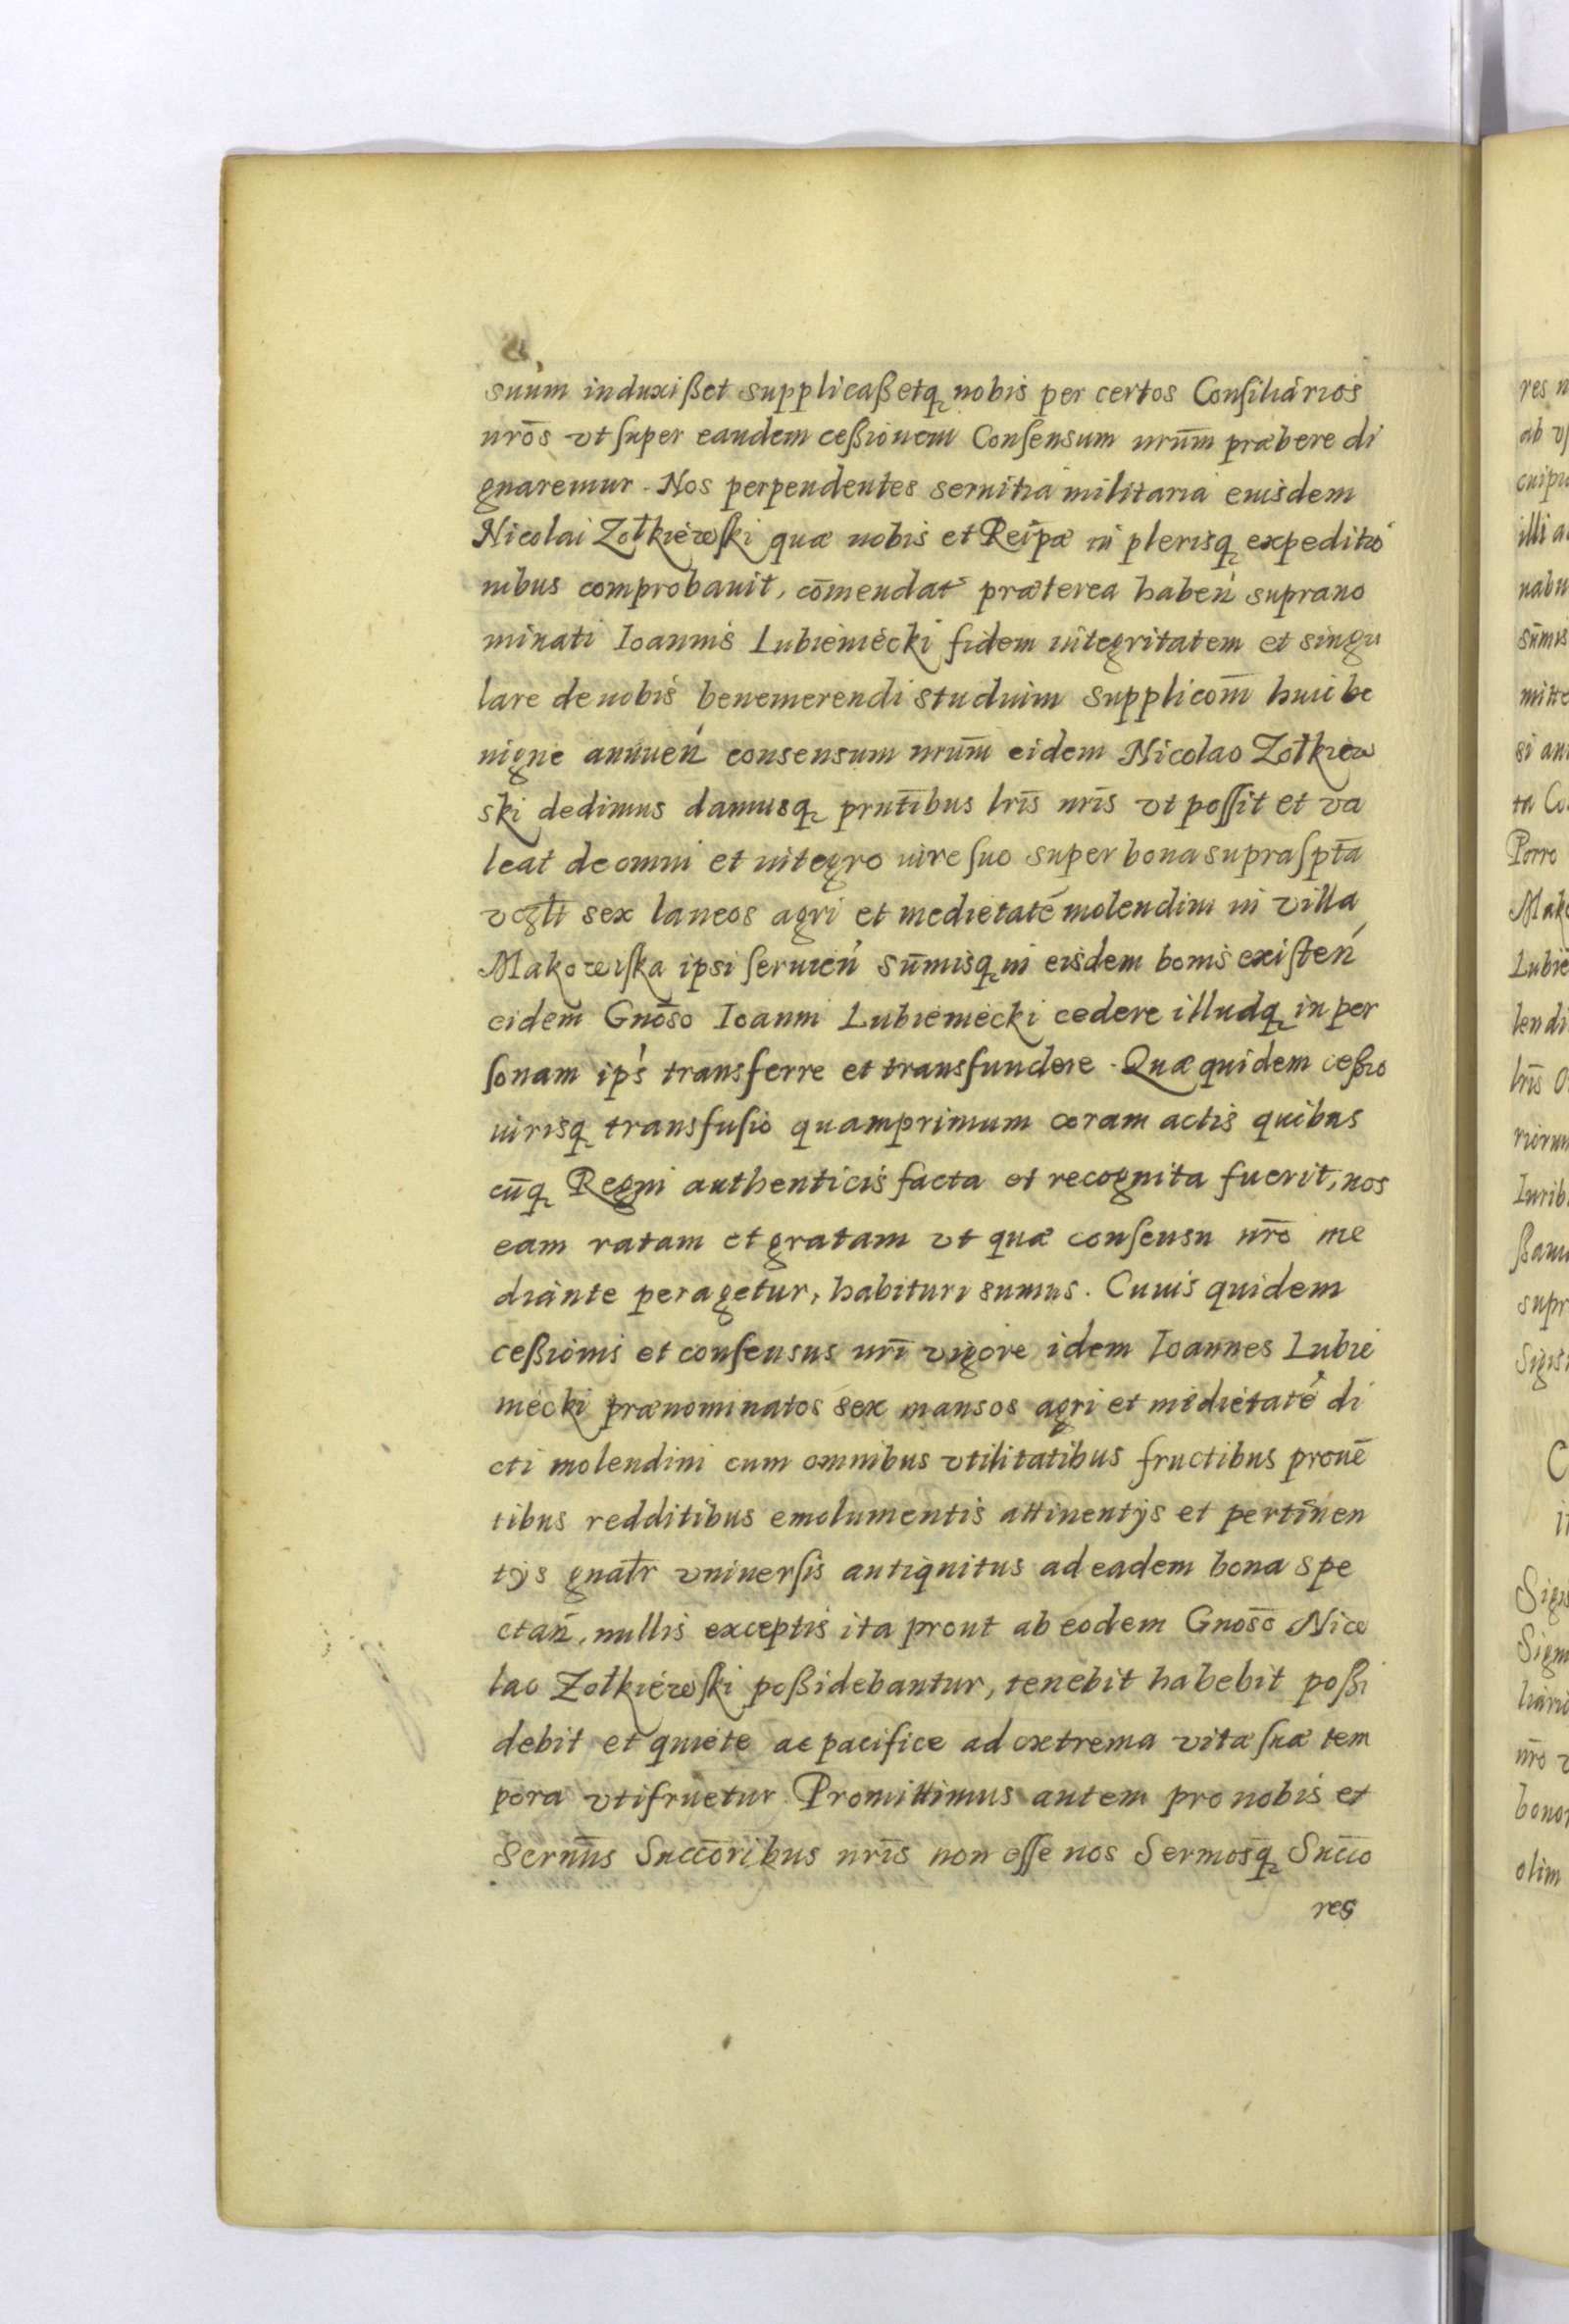 suum induxißet supplicaßetq nobis per certos Consiliarios
nrōs vt super eandem ceßionem Consensum nrūm præbere di
gnaremur. Nos perpendentes seruitia militaria eiusdem
Nicolai Zołkiewski quæ nobis et Reipæ in plerisq expeditio
nibus comprobauit, cōmendat præterea haben suprano
minati Ioannis Lubieniecki fidem integritatem et singu
lare de nobis benemerendi studium supplicom̄ huic be
nigne annuen consensum nrūm eidem Nicolao Zołkiew
ski dedimus damusq prntībus lrīs nrīs vt possit et va
leat de omni et integro iure suo super bona supraspt̄a
vzlt sex laneos agri et medietatē molendini in villa
Makowiska ipsi seruien sūmisq in eisdem bonis existen
eidem Gnōso Ioanni Lubieniecki cedere illudq in per
sonam ips transferre et transfundere. Quæ quidem ceßio
iurisq transfusio quamprimum coram actis quibus
cūq Regni authenticis facta et recognita fuerit, nos
eam ratam et gratam vt quæ consensu nrō me
diante peragetur, habituri sumus. Cuius quidem
ceßionis et consensus nrī vigore idem Ioannes Lubie
niecki prænominatos sex mansos agri et medietatē di
cti molendini cum omnibus vtilitatibus fructibus prouē
tibus redditibus emolumentis attinentijs et pertinen
tijs gnalr vniuersis antiquitus ad eadem bona spe
ctan, nullis exceptis ita prout ab eodem Gnōso Nico
lao Zołkiewski poßidebantur, tenebit habebit poßi
debit et quiete ac pacifice ad extrema vitæ suæ tem
pora vtifruetur. Promittimus autem pro nobis et
Serm̄is Succōribus nrīs non esse nos Sermosq Succo
res